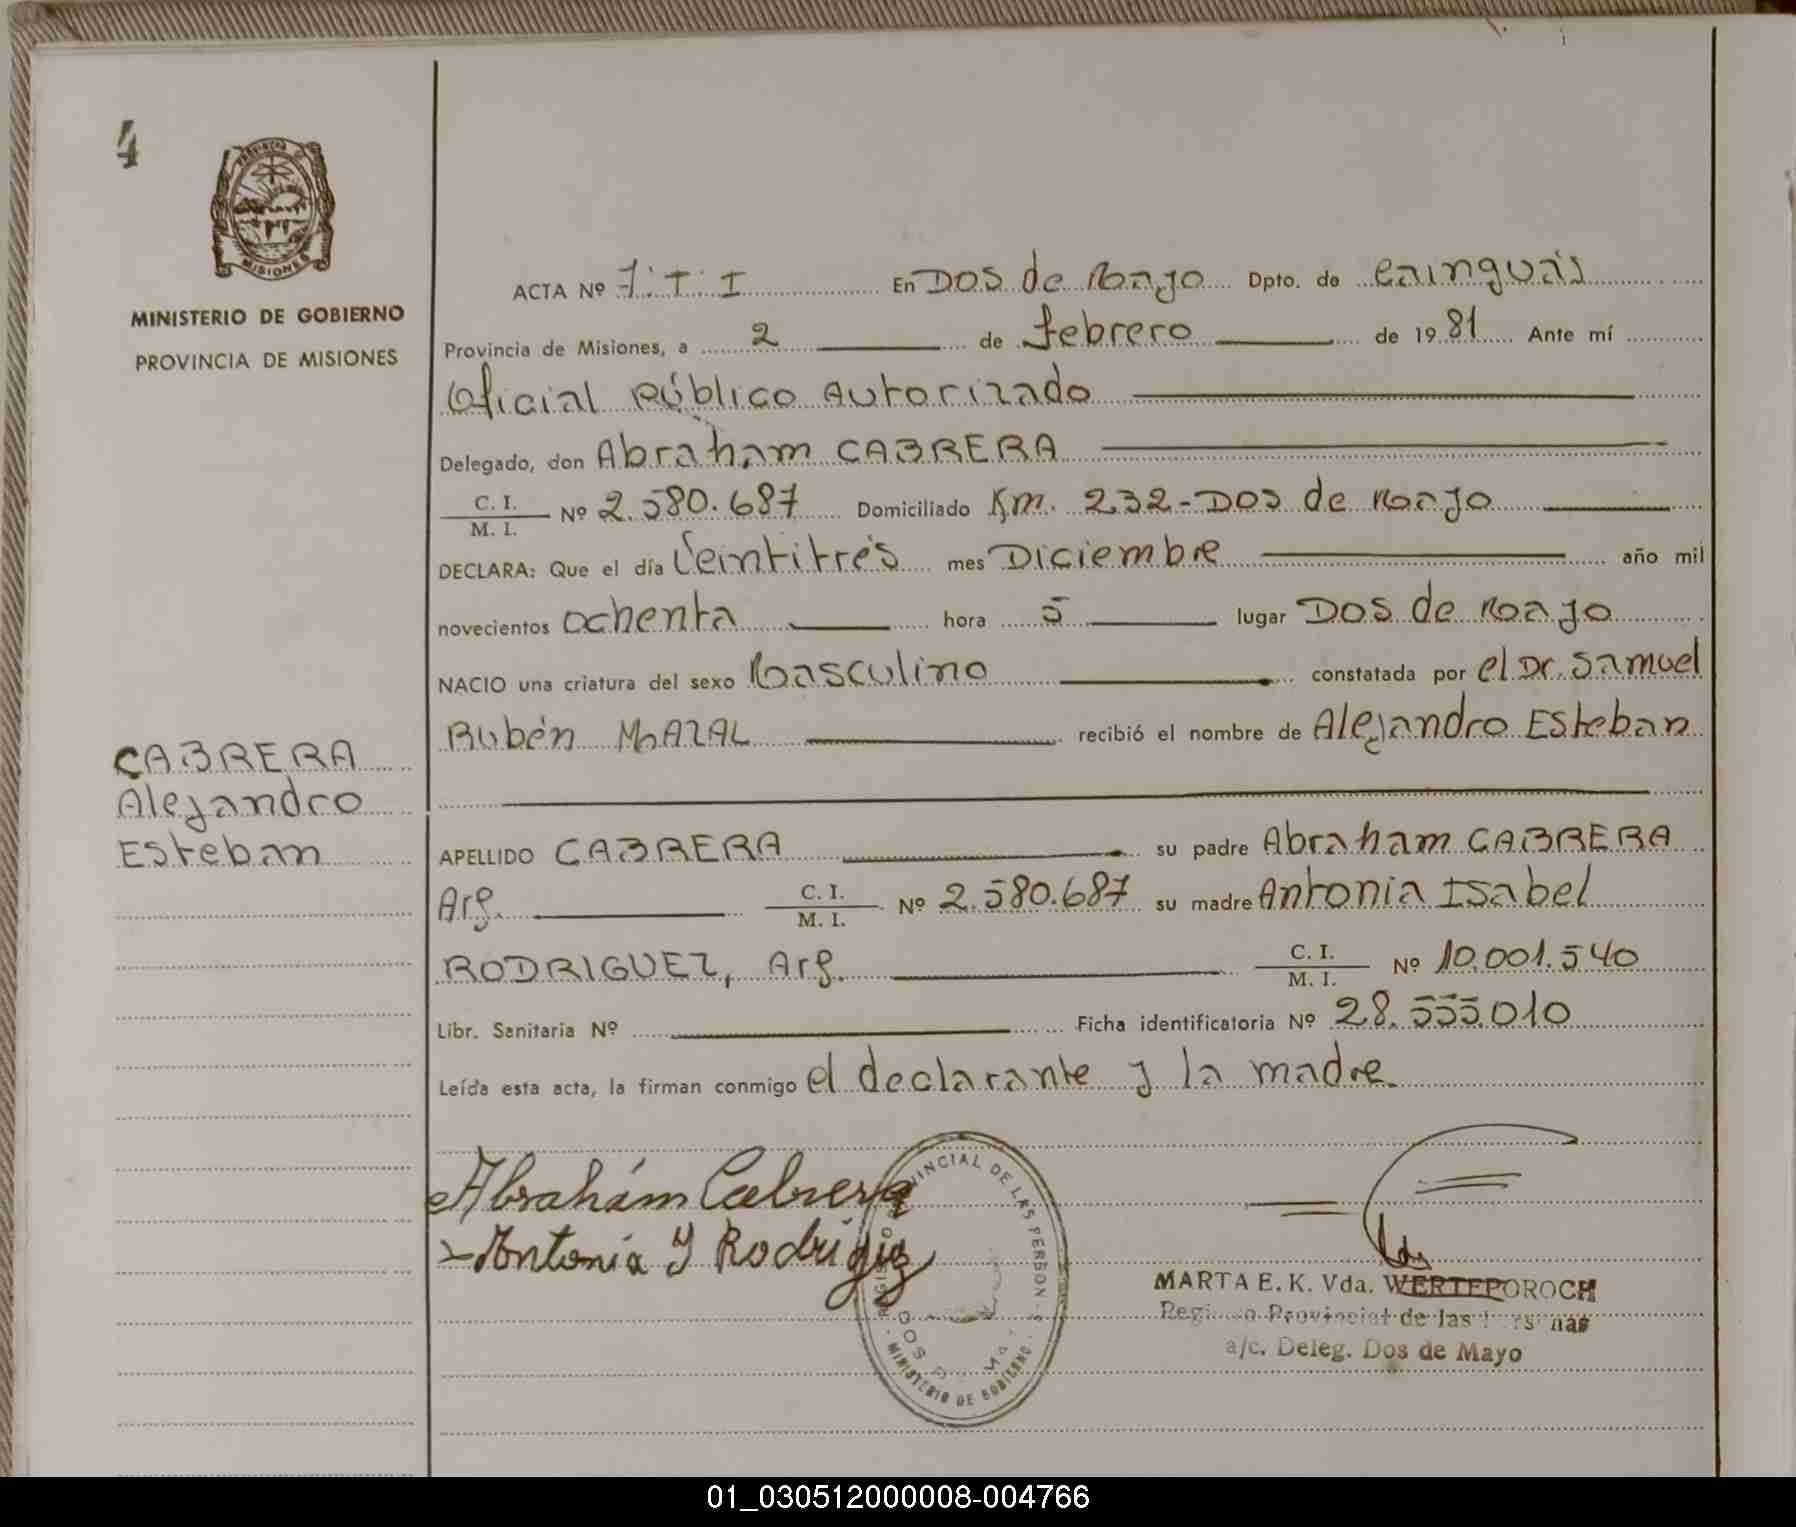 4
PROVINCIA DE
MISIONES
MINISTERIO DE GOBIERNO
PROVINCIA DE MISIONES
ACTA Nº 7.T.I En Dos de Mayo Dpto. de Cainguás
Provincia de Misiones, a 2 de febrero de 1981 Ante mí
Oficial Público Autorizado
Delegado, don Abraham CABRERA
C. I.
M. I. Nº 2.580.687 Domiciliado Km. 232-Dos de Mayo
DECLARA: Que el día Veintitrés mes Diciembre año mil
novecientos ochenta hora 5 lugar Dos de Mayo
NACIO una criatura del sexo Masculino constatada por el Dr. Samuel
Rubén MAZAL recibió el nombre de Alejandro Esteban
CABRERA
Alejandro
Esteban
APELLIDO CABRERA su padre Abraham CABRERA
Arg. C. I. M. I. Nº 2.580.687 su madre Antonia Isabel
RODRIGUEZ, Arg. C. I. M. I. Nº 10.001.540
Libr. Sanitaria Nº Ficha identificatoria Nº 28.555.010
Leída esta acta, la firman conmigo el declarante y la madre.
Abrahám Cabrera
Antonia Y Rodrigez
PROVINCIAL DE LAS PERSON
DOS
MINISTERIO DE GOBIERNO
MARTA E. K. Vda. WERTEPOROCH
Provincial de las
a/c. Deleg. Dos de Mayo
01_030512000008-004766